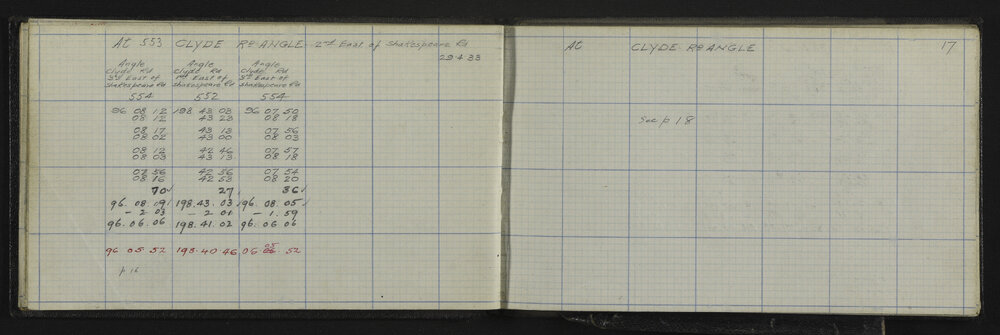 At 553 CLYDE Rd ANGLE 2nd East of Shakespeare Rd
29 4 33
Angle Angle Angle
Clyde Rd Clyde Rd Clyde Rd
3rd East of 1st East of 3rd East of
Shakespeare Rd Shakespeare Rd Shakespeare Rd
554 552 554
96 08 12 198 43 03 96 07 50
08 12 43 23 08 18
08 17 43 13 07 56
08 02 43 00 08 03
08 12 42 46 07 57
08 03 43 13 08 18
07 56 42 56 07 54
08 16 42 53 08 20
70✓ 27✓ 36✓
96.08.09✓ 198.43.03✓ 96.08.05✓
- 2 03 - 2 01 - 1.59
96.06.06 198.41.02 96.06 06
05
96 05.52 198.40.46 06 52
p 16
At CLYDE Rd ANGLE 17
See p 18